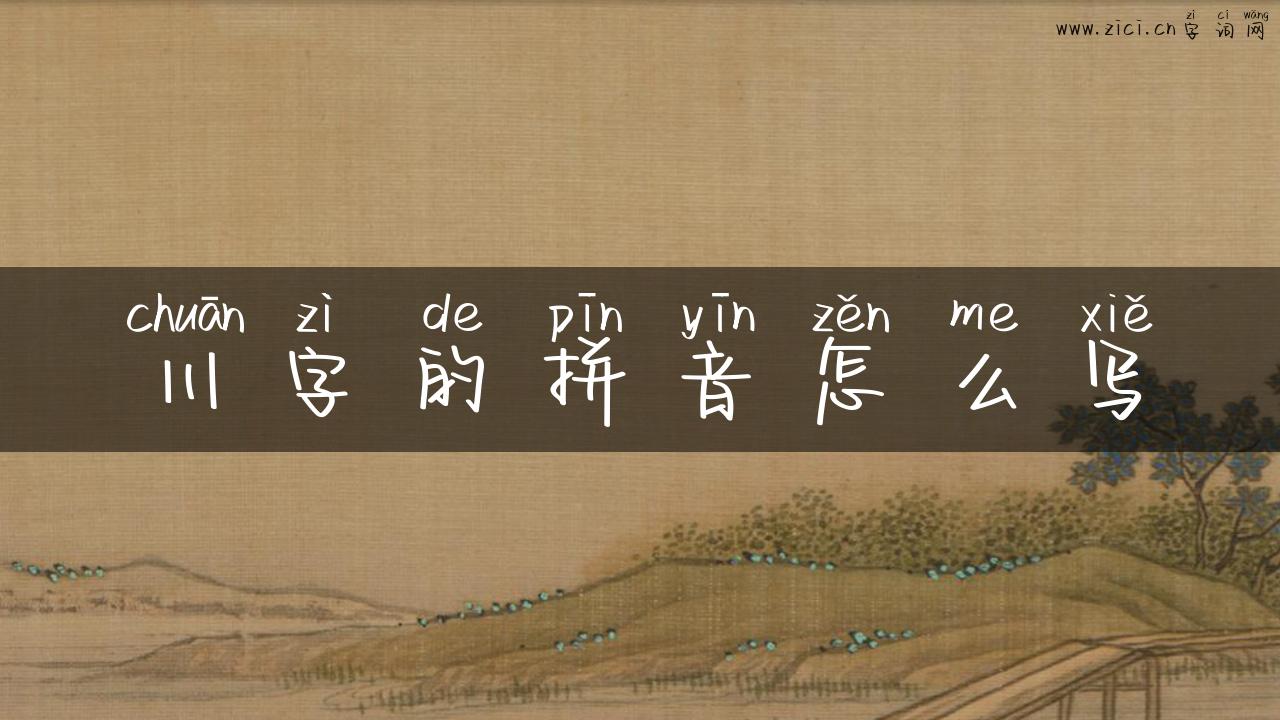 zì cí wǎng
www.zici.cn字词网
chuān zì de pīn yīn zěn me xiě
川字的拼音怎么写